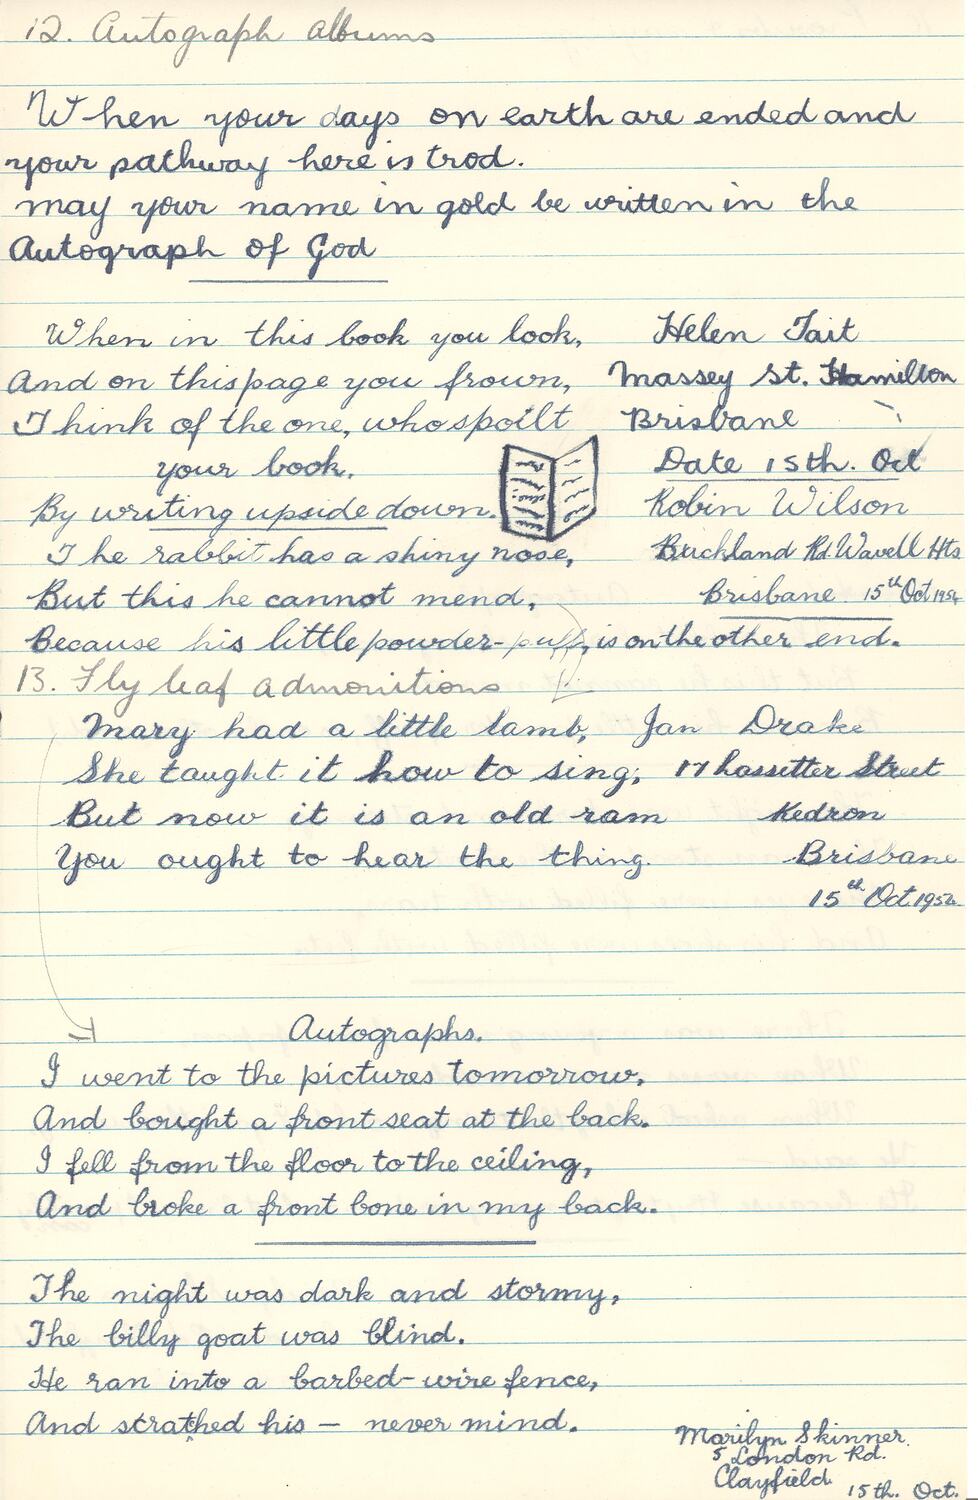 12. Autograph albums
When your days on earth are ended and
your pathway here is trod.
may your name in gold be written in the
Autograph of God
When in this book you look,
And on this page you frown,
Think of the one, who spoilt
your book.
By writing upside down.
Helen Tait
Massey St. Hamilton
Brisbane
Date 15th. Oct
The rabbit has a shiny nose,
But this he cannot mend,
Because his little powder-puff, is on the other end.
Robin Wilson
Buckland Rd. Wavell Hts
Brisbane. 15th Oct 1954
13. Fly leaf admonitions
Mary had a little lamb,
She taught it how to sing;
But now it is an old ram
You ought to hear the thing.
Jan Drake
17 Street
Kedron
Brisbane
15th Oct 1954
Autographs.
I went to the pictures tomorrow,
And bought a front seat at the back.
I fell from the floor to the ceiling,
And broke a front bone in my back.
The night was dark and stormy,
The billy goat was blind.
He ran into a barbed-wire fence,
And strathed his – never mind.
Marilyn Skinner.
5 London Rd.
Clayfield
15th. Oct.